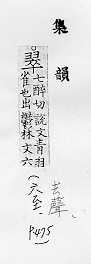 集韻
翠七醉切說文青羽
雀也出鬱林文六
(六至)
P475